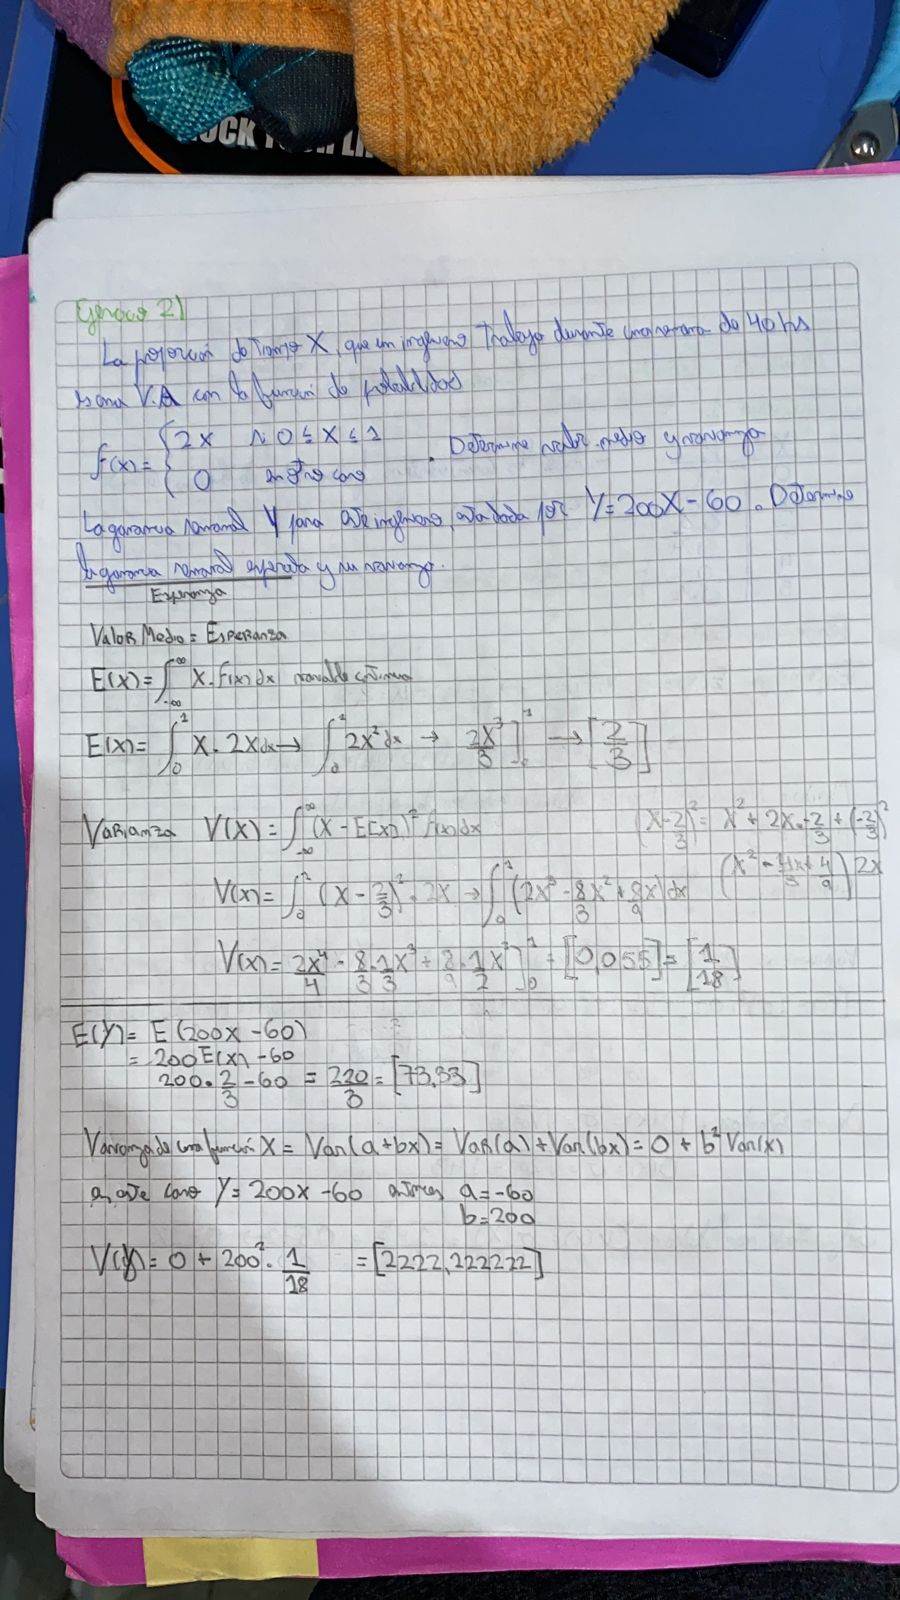 Ejercicio 2)
La proporción de Tiempo X, que un ingeniero Trabaja durante una semana de 40 hs
es una V.A con la función de probabilidad
f(x)= { 2x si 0 ≤ x ≤ 1
0 en otro caso
. Determine valor medio y varianza
La ganancia semanal Y para este ingeniero, esta dada por Y=200X-60. Determine
la ganancia semanal esperada y su varianza.
Esperanza
Valor Medio = Esperanza
E(x)= ∫_{-∞}^{∞} x.f(x)dx variable continua
E(x)= ∫_0^1 x.2xdx → ∫_0^1 2x²dx → 2x³/3 ]_0^1 → [2/3]
Varianza V(x)= ∫_{-∞}^{∞} (x-E[x])² f(x)dx
(x-2/3)² = x² + 2x.-2/3 + (-2/3)²
V(x)= ∫_0^1 (x-2/3)².2x → ∫_0^1 (2x³-8/3x²+8/9x)dx
(x²-4x/3+4/9)2x
V(x)= 2x⁴/4 - 8/3.1/3x³ + 8/9.1/2x² ]_0^1 = [0,055] = [1/18]
E(Y)= E(200x-60)
= 200E(x)-60
200.2/3-60 = 220/3 = [73,33]
Varianza de una función X = Var(a+bx)= Var(a)+Var(bx)= 0+b²Var(x)
en este caso Y=200x-60 entonces a=-60
b=200
V(Y)= 0+200².1/18 =[2222,222222]